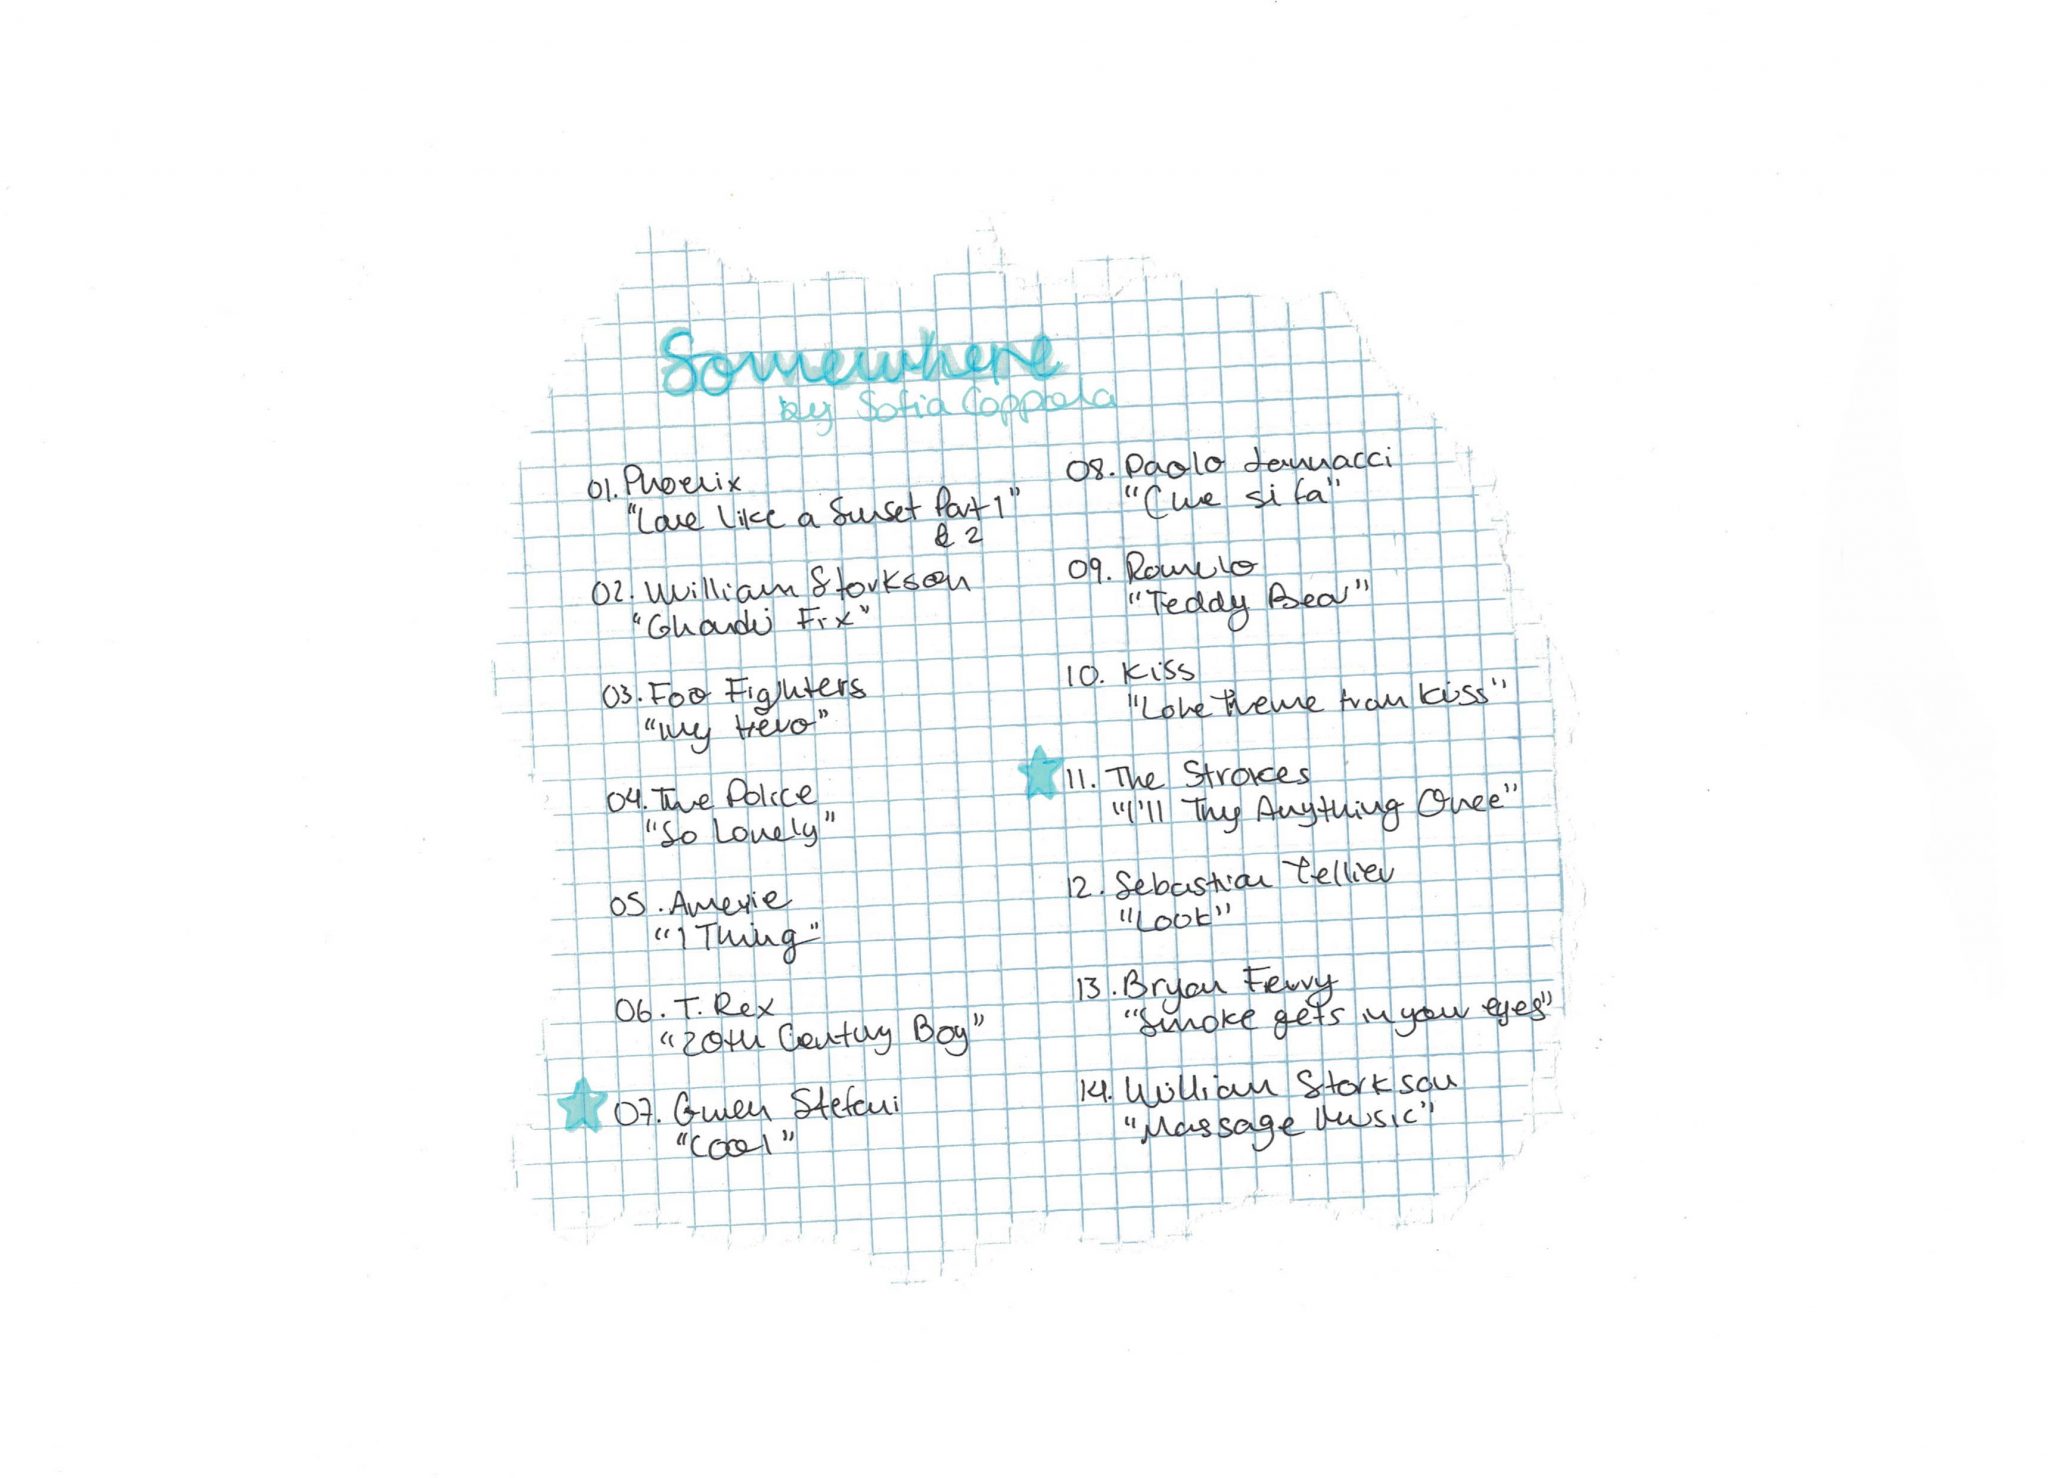 Somewhere
by Sofia Coppola
01. Phoenix
"Love Like a Sunset Part 1"
& 2
02. William Storkson
"Ghandi Fix"
03. Foo Fighters
"My Hero"
04. The Police
"So Lonely"
05. Amerie
"1 Thing"
06. T. Rex
"20th Century Boy"
07. Gwen Stefani
"Cool"
08. Paolo Jannacci
"Che si fa"
09. Romulo
"Teddy Bear"
10. Kiss
"Love theme from Kiss"
11. The Strokes
"I'll Try Anything Once"
12. Sebastian Tellier
"Look"
13. Bryan Ferry
"Smoke gets in your eyes"
14. William Storkson
"Massage Music"